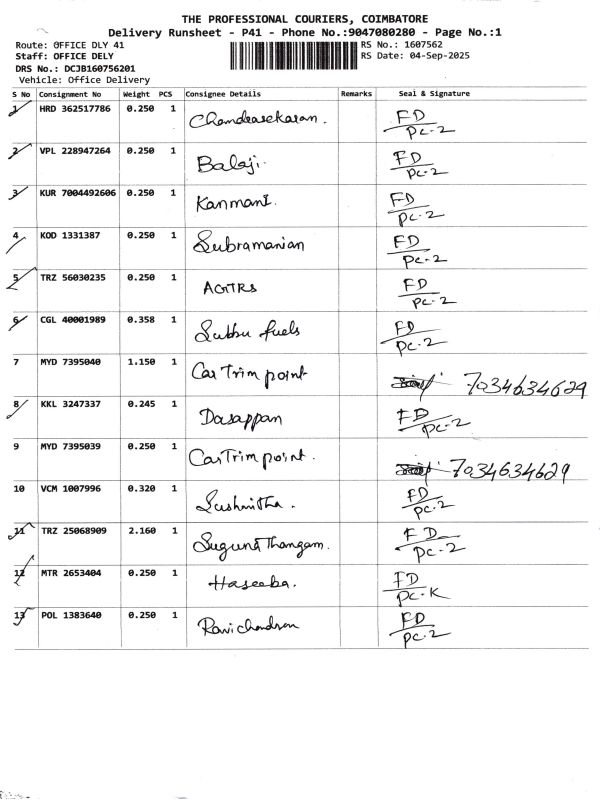 THE PROFESSIONAL COURIERS, COIMBATORE
Delivery Runsheet - P41 - Phone No.:9047080280 - Page No.:1
Route: OFFICE DLY 41 RS No.: 1607562
Staff: OFFICE DELY RS Date: 04-Sep-2025
DRS No.: DCJB160756201
Vehicle: Office Delivery
S No Consignment No Weight PCS Consignee Details Remarks Seal & Signature
1 HRD 362517786 0.250 1 Chandrasekaran. FD/PC-2
2 VPL 228947264 0.250 1 Balaji. FD/PC-2
3 KUR 7004492606 0.250 1 Kanmani. FD/PC-2
4 KOD 1331387 0.250 1 Subramanian FD/PC-2
5 TRZ 56030235 0.250 1 FD/PC-2
6 CGL 40001989 0.358 1 Subbu fuels FD/PC-2
7 MYD 7395040 1.150 1 Car Trim point 7034634629
8 KKL 3247337 0.245 1 Dasappan FD/PC-2
9 MYD 7395039 0.250 1 Car Trim point. 7034634629
10 VCM 1007996 0.320 1 Sushmitha. FD/PC-2
11 TRZ 25068909 2.160 1 Suguna Thangam. FD/PC-2
12 MTR 2653404 0.250 1 Haseeba. FD/PC-K
13 POL 1383640 0.250 1 Ravichandran FD/PC-2